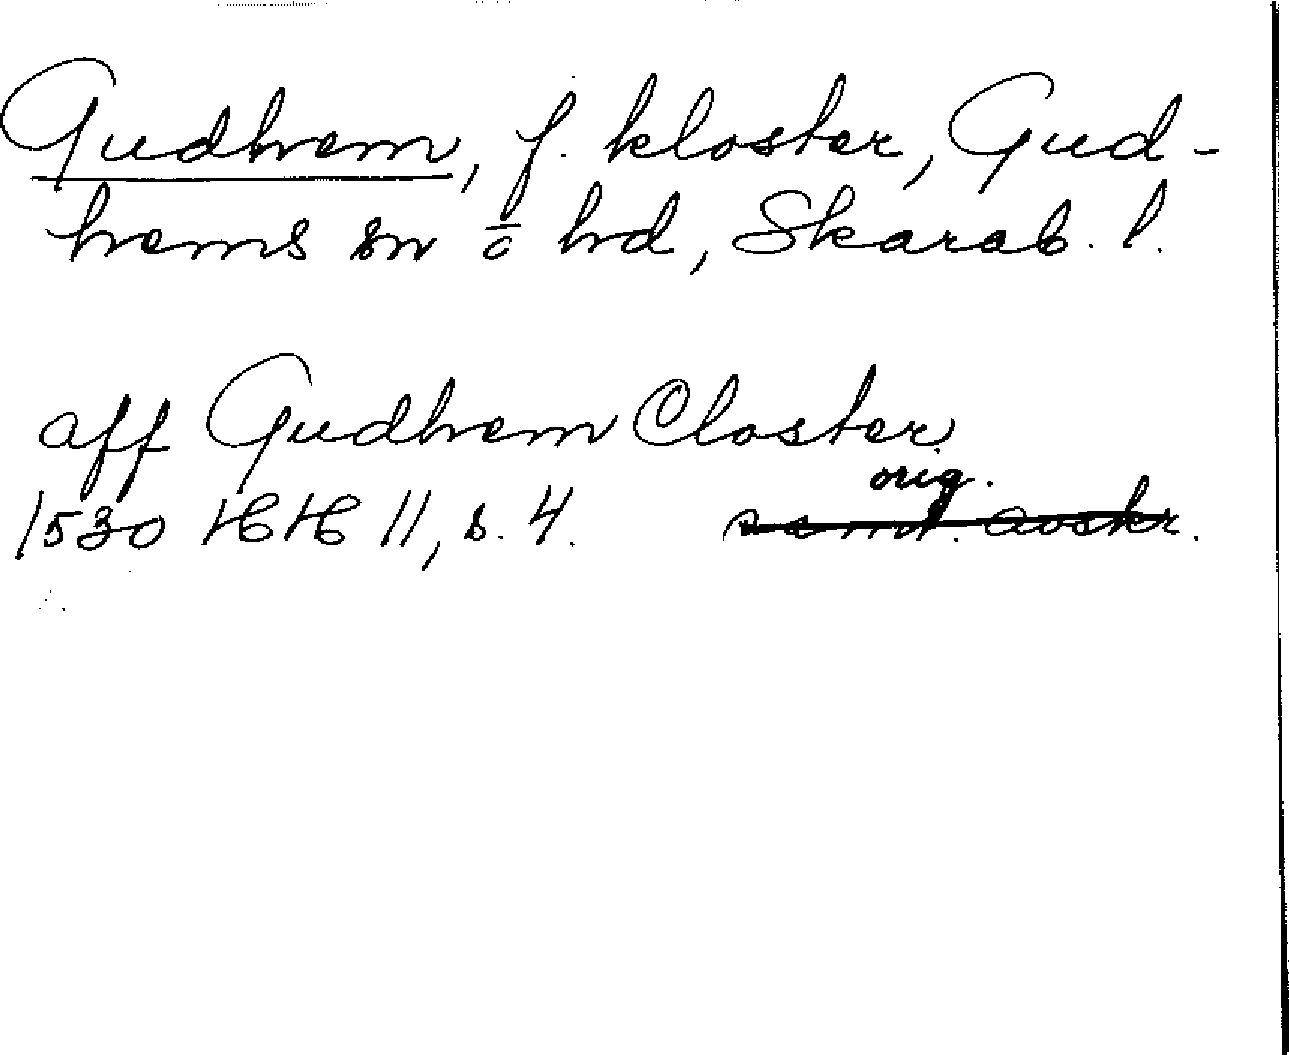 Gudhem, f. kloster, Gud-
hems sn o hd, Skarab. l.
aff Gudhem Closter
orig.
1530 HH 11, s. 4. samt. avskr.